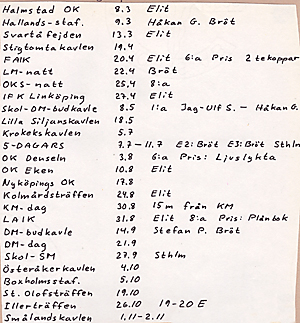 Halmstad OK 8.3 Elit
Hallands-staf. 9.3 Håkan G. Bröt
Svartåfejden 13.3 Elit
Stigtomtakavlen 19.4
FAIK 20.4 Elit 6:a Pris 2 tekoppar
LM-natt 22.4 Bröt
OKS-natt 25.4 8:a
IFK Linköping 27.4 Elit
Skol-DM-budkavle 8.5 1:a Jag-Ulf S. - Håkan G.
Lilla Siljanskavlen 18.5
Krokekskavlen 5.7
5-DAGARS 7.7-11.7 E2: Bröt E3: Bröt Sthlm
OK Denseln 3.8 6:a Pris: Ljuslykta
OK Eken 10.8 Elit
Nyköpings OK 17.8
Kolmårdsträffen 24.8 Elit
KM-dag 30.8 15m från KM
LAIK 31.8 Elit 8:a Pris: Plånbok
DM-budkavle 14.9 Stefan P. Bröt
DM-dag 21.9
Skol-SM 27.9 Sthlm
Österåkerkavlen 4.10
Boxholmsstaf. 5.10
St. Olofsträffen 19.10
Illerträffen 26.10 19-20 E
Smålandskavlen 1.11-2.11